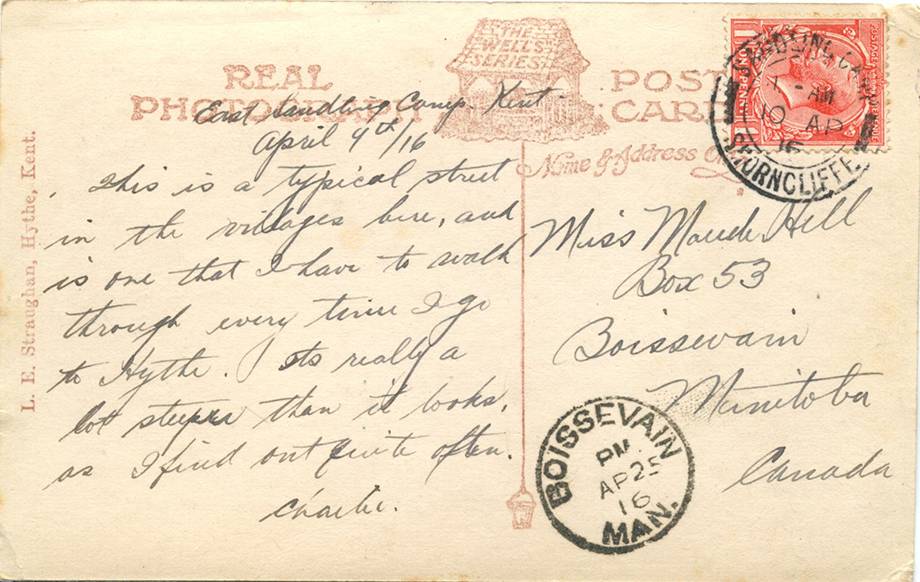 THE
WELLS
SERIES
REAL
PHOTOGRAPH
POST
CARD
East Sandling Camp. Kent
April 9th/16
This is a typical street
in the villages here, and
is one that I have to walk
through every time I go
to Hythe. Its really a
lot steeper than it looks,
as I find out quite often.
Charlie.
Name & Address
Miss Maude Hell
Box 53
Boissevain
Manitoba
Canada
SANDLING CAMP
AM
10 AP
16
SHORNCLIFFE
POSTAGE
BOISSEVAIN
PM
AP 25
16
MAN.
L. E. Straughan, Hythe, Kent.